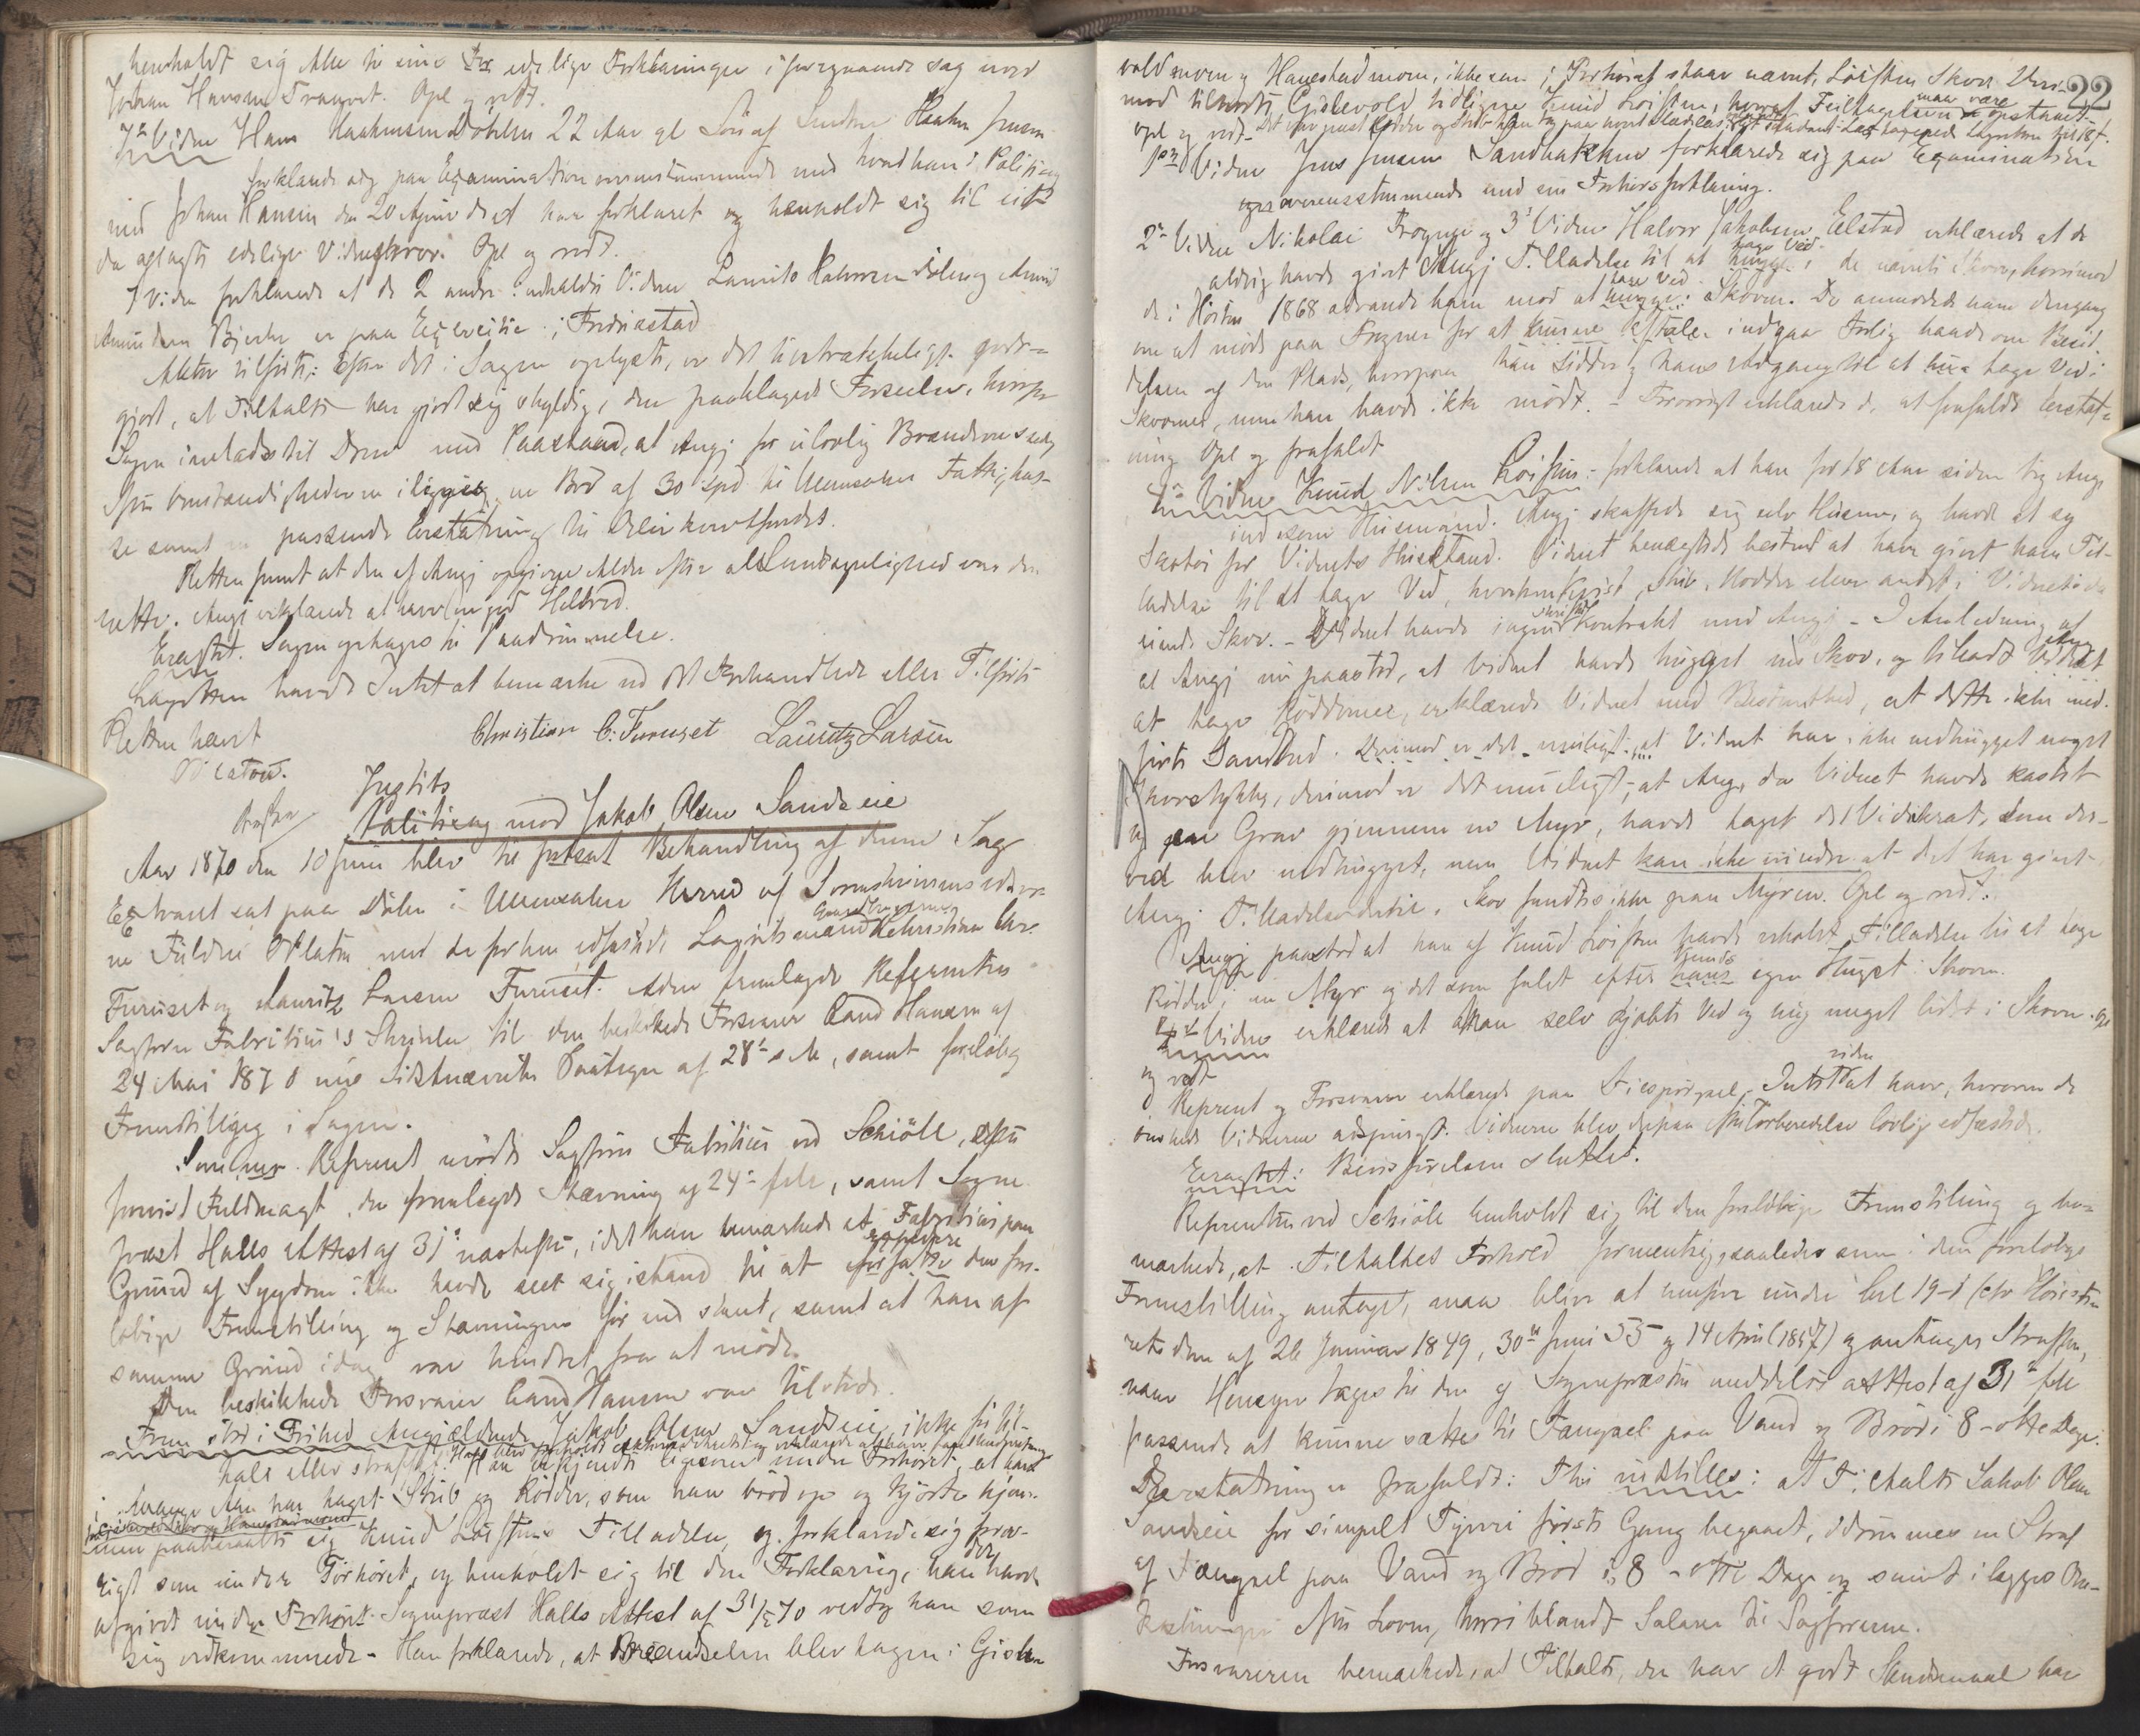 henholdt sig Alle til sine edelige Forklaringer i foregaaende Sag mod
Johan Hansen Opl og vedt.
7de Vidne Hans Haakensen Døhlen 22 Aar gl Søn af Haaken Jensen
forklarede sig paa Examination overensstemmende med hvad han i Politisag
mod Johan Hansen den 20 April d. A. har forklaret og henholdt sig til sit
da aflagte edelige Vidnesbrev. Opl og vedt.
7 Vidne forklarede at de 2 andre udeholdte Vidner Laurits og Amund
Amundsen Bjerke er paa Exercitie i Fredrikstad
Aktor tilførte: Efter det i Sagen oplyste, er det tilstrækkeligt godt-
gjort, at Tiltalte har gjort sig skyldig i den paaklagede Forseelse, hvorfor
Sagen indlades til Dom med Paastand, at Angj for ulovlig Brændeviinssalg
efter Omstændighederne ilægges en Bod af 30 Spd til Ullensakers Fattigkas-
se samt passende Erstatning til Delinkventfondet.
Retten fandt at den af Angj opgivne Alder efter al Sandsynlighed var den
rette. Angj erklærede at have en god Helbred.
Eragtet. Sagen optages til Paadømmelse.
Lagretten havde Intet at bemærke ved det Forhandlede eller Tilførte
Retten hævet
Platou.
Christian C. Furuset Lauritz Larsen
Justits
Politisag mod Jakob Olsen Sandseie
Aar 1870 den 10 Juni blev til Behandling af denne Sag
Extraret sat paa Døhlen i Ullensaker Herred af Sorenskriverens edsvor-
ne Fuldm Platou med de før ham edfæstede Lagrettesmænd Gaardbrugerne Christian Chr.
Furuset og Lauritz Larsen Furuset. Aktor fremlagde
Sagfører Fabritius's Skrivelse til den beskikkede Forsvarer Cand Hansen af
24 Mai 1870 med Sidstnævntes Paategn af 28de s. M, samt foreløbig
Fremstilling i Sagen.
Som Repræsent mødte Sagfører Fabritius ved Schiøll, efter
forevist Fuldmagt, der fremlagde Stævning af 24de f. M, samt Sogne
præst Halls Attest af 31te næstefter, idet han bemærkede at Fabritius paa
Grund af Sygdom ikke havde seet sig istand til at forfatte den fore-
løbige Fremstilling og Stævningen før end skeet, samt at han af
samme Grund idag var hindret fra at møde.
Den beskikkede Forsvarer Cand Hansen var tilstede.
Frem stod i Frihed Angjældende Jakob Olsen Sandseie, ikke før til-
talt eller straffet.
Han erkjendte ligesom under Forhøret, at have
taget Stub og Rødder, som han brød op og kjørte hjem
men paaberaabte sig Knud Løistens Tilladelse, og forklarede sig forøv-
rigt som under Forhøret, og henholdt sig til den Forklaring, han der havde
afgivet under Forhøret. Sognepræst Halls Attest af 31/5 70 vedtog han som
sig vedkommende. Han forklarede, at Brændselen blev tagen i Gislen-
22
vold moen og Hanestad moen, ikke som i Forhøret staar nævnt, Løisten Skov.
mod tilhørte Gislevold tidligere Knud Løisten, hvoraf Feiltagelsen maa være opstaaet.
1ste Vidne Jens Jensen Sandbakken forklarede sig paa Examination
overensstemmende med sin Forhørsforklaring.
2det Vidne Nikolai Frogner og 3de Vidne Halvor Jakobsen Elstad erklærede at de
aldrig havde givet Angj Tilladelse til at tage Ved i de nævnte Skove, hvorimod
de i Høsten 1868 advarede ham mod at tage Ved i Skoven. De anmodede ham dengang
om at møde paa Frogner for at kunne Aftale indgaa
delsen af den Plads, hvorpaa han sidder og hans Adgang til at tage Ved i
Skovene, men han havde ikke mødt. – Forøvrigt erklærede de at frafalde Erstat-
ning Opl og frafaldt
4de Vidne Knud Nilsen Løisten. forklarede at han for 18 Aar siden tog Angj
ind som Huusmand. Angj skaffede sig selv Husene, og havde at sy
Skotøi for Vidnets Huusstand. Vidnet benægtede bestemt at have givet ham Til-
ladelse til at tage Ved, hverken Kvist, Stub, Rødder eller andet i Vidnets da
eiende Skov. – Vidnet havde ingen skriftlig Kontrakt med Angj – I Anledning af
at Angj nu paastod, at Vidnet havde hugget ned Skov, og tilladt Angj
at tage Rødderne, erklærede Vidnet med Bestemthed, at dette ikke med-
førte Sandhed. Derimod er det muligt, at Vidnet har ikke nedhugget noget
Skovstykke, derimod er det muligt, at Angj, da Vidnet havde kastet
op en Grav gjennem en Myr, havde taget det Vidikrat, som der-
ved blev nedhugget, men Vidnet kan ikke mindes at det har givet
Angj Tilladelse dertil. Skov fandtes ikke paa Myren. Opl og vedt.
Angj paastod at han af Knud Løisten havde erholdt Tilladelse til at tage
Rødder i en Myr og det som faldt efter Knuds egen Hugst i Skoven.
4de Vidne erklærede at han selv kjøbte Ved og tog meget lidet i Skoven. Opl
og vedt
Repræsent og Forsvarer erklærede paa Tilspørgsel Intet videre at have, hvorom de
ønskede Vidnerne adspurgt. Vidnerne blev derpaa efter Forberedelse lovlig edfæstede.
Eragtet: Bevisførelsen sluttet.
Repræsenten ved Schiøll henholdt sig til den foreløbige Fremstilling og be-
mærkede, at Tiltaltes Forhold formentlig, saaledes som i den foreløbige
Fremstilling antaget, maa blive at henføre under Crl 19-1 (cfr Høieste-
rets dom af 26 Januar 1849, 30te Juni 55 og 14 April 1857) og antages Straffen,
naar Hensyn tages til den af Sognepræsten meddelte Attest af 31te f. M
passende at kunne sættes til Fængsel paa Vand og Brød i 8 – otte Dage.
Erstatning er frafaldt: Thi indstilles: at Tiltalte Jakob Olsen
Sandseie for simpelt Tyveri første Gang begaaet, idømmes en Straf
af Fængsel paa Vand og Brød i 8 – otte Dage og samt ilægges Om-
kostninger efter Loven, hvoriblandt Salærer til Sagførerne.
Forsvareren bemærkede, at Tiltalte, der har et godt Skudsmaal har